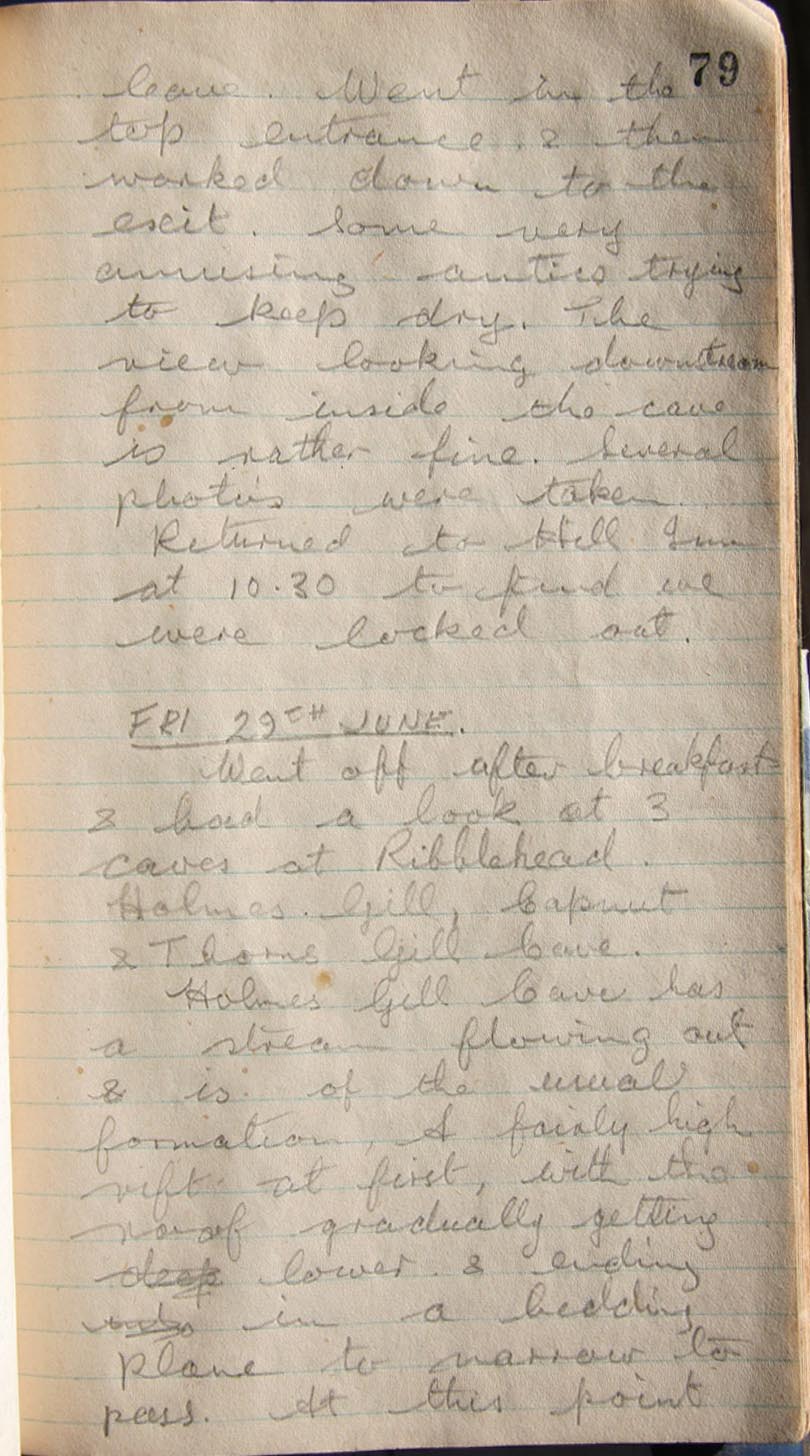 79
Cave. Went in the
top entrance & then
worked down to the
exit. Some very
amusing antics trying
to keep dry. The
view looking downstream
from inside the cave
is rather fine. Several
photos were taken.
Returned to Hill Inn
at 10.30 to find we
were locked out.
FRI 29TH JUNE.
Went off after breakfast
& had a look at 3
caves at Ribblehead.
Holmes. Gill, Capnut
& Thorns Gill Cave.
Holmes Gill Cave has
a stream flowing out
& is of the usual
formation, A fairly high
rift at first, with the
roof gradually getting
deep lower & ending
in a bedding
plane to narrow to
pass. At this point